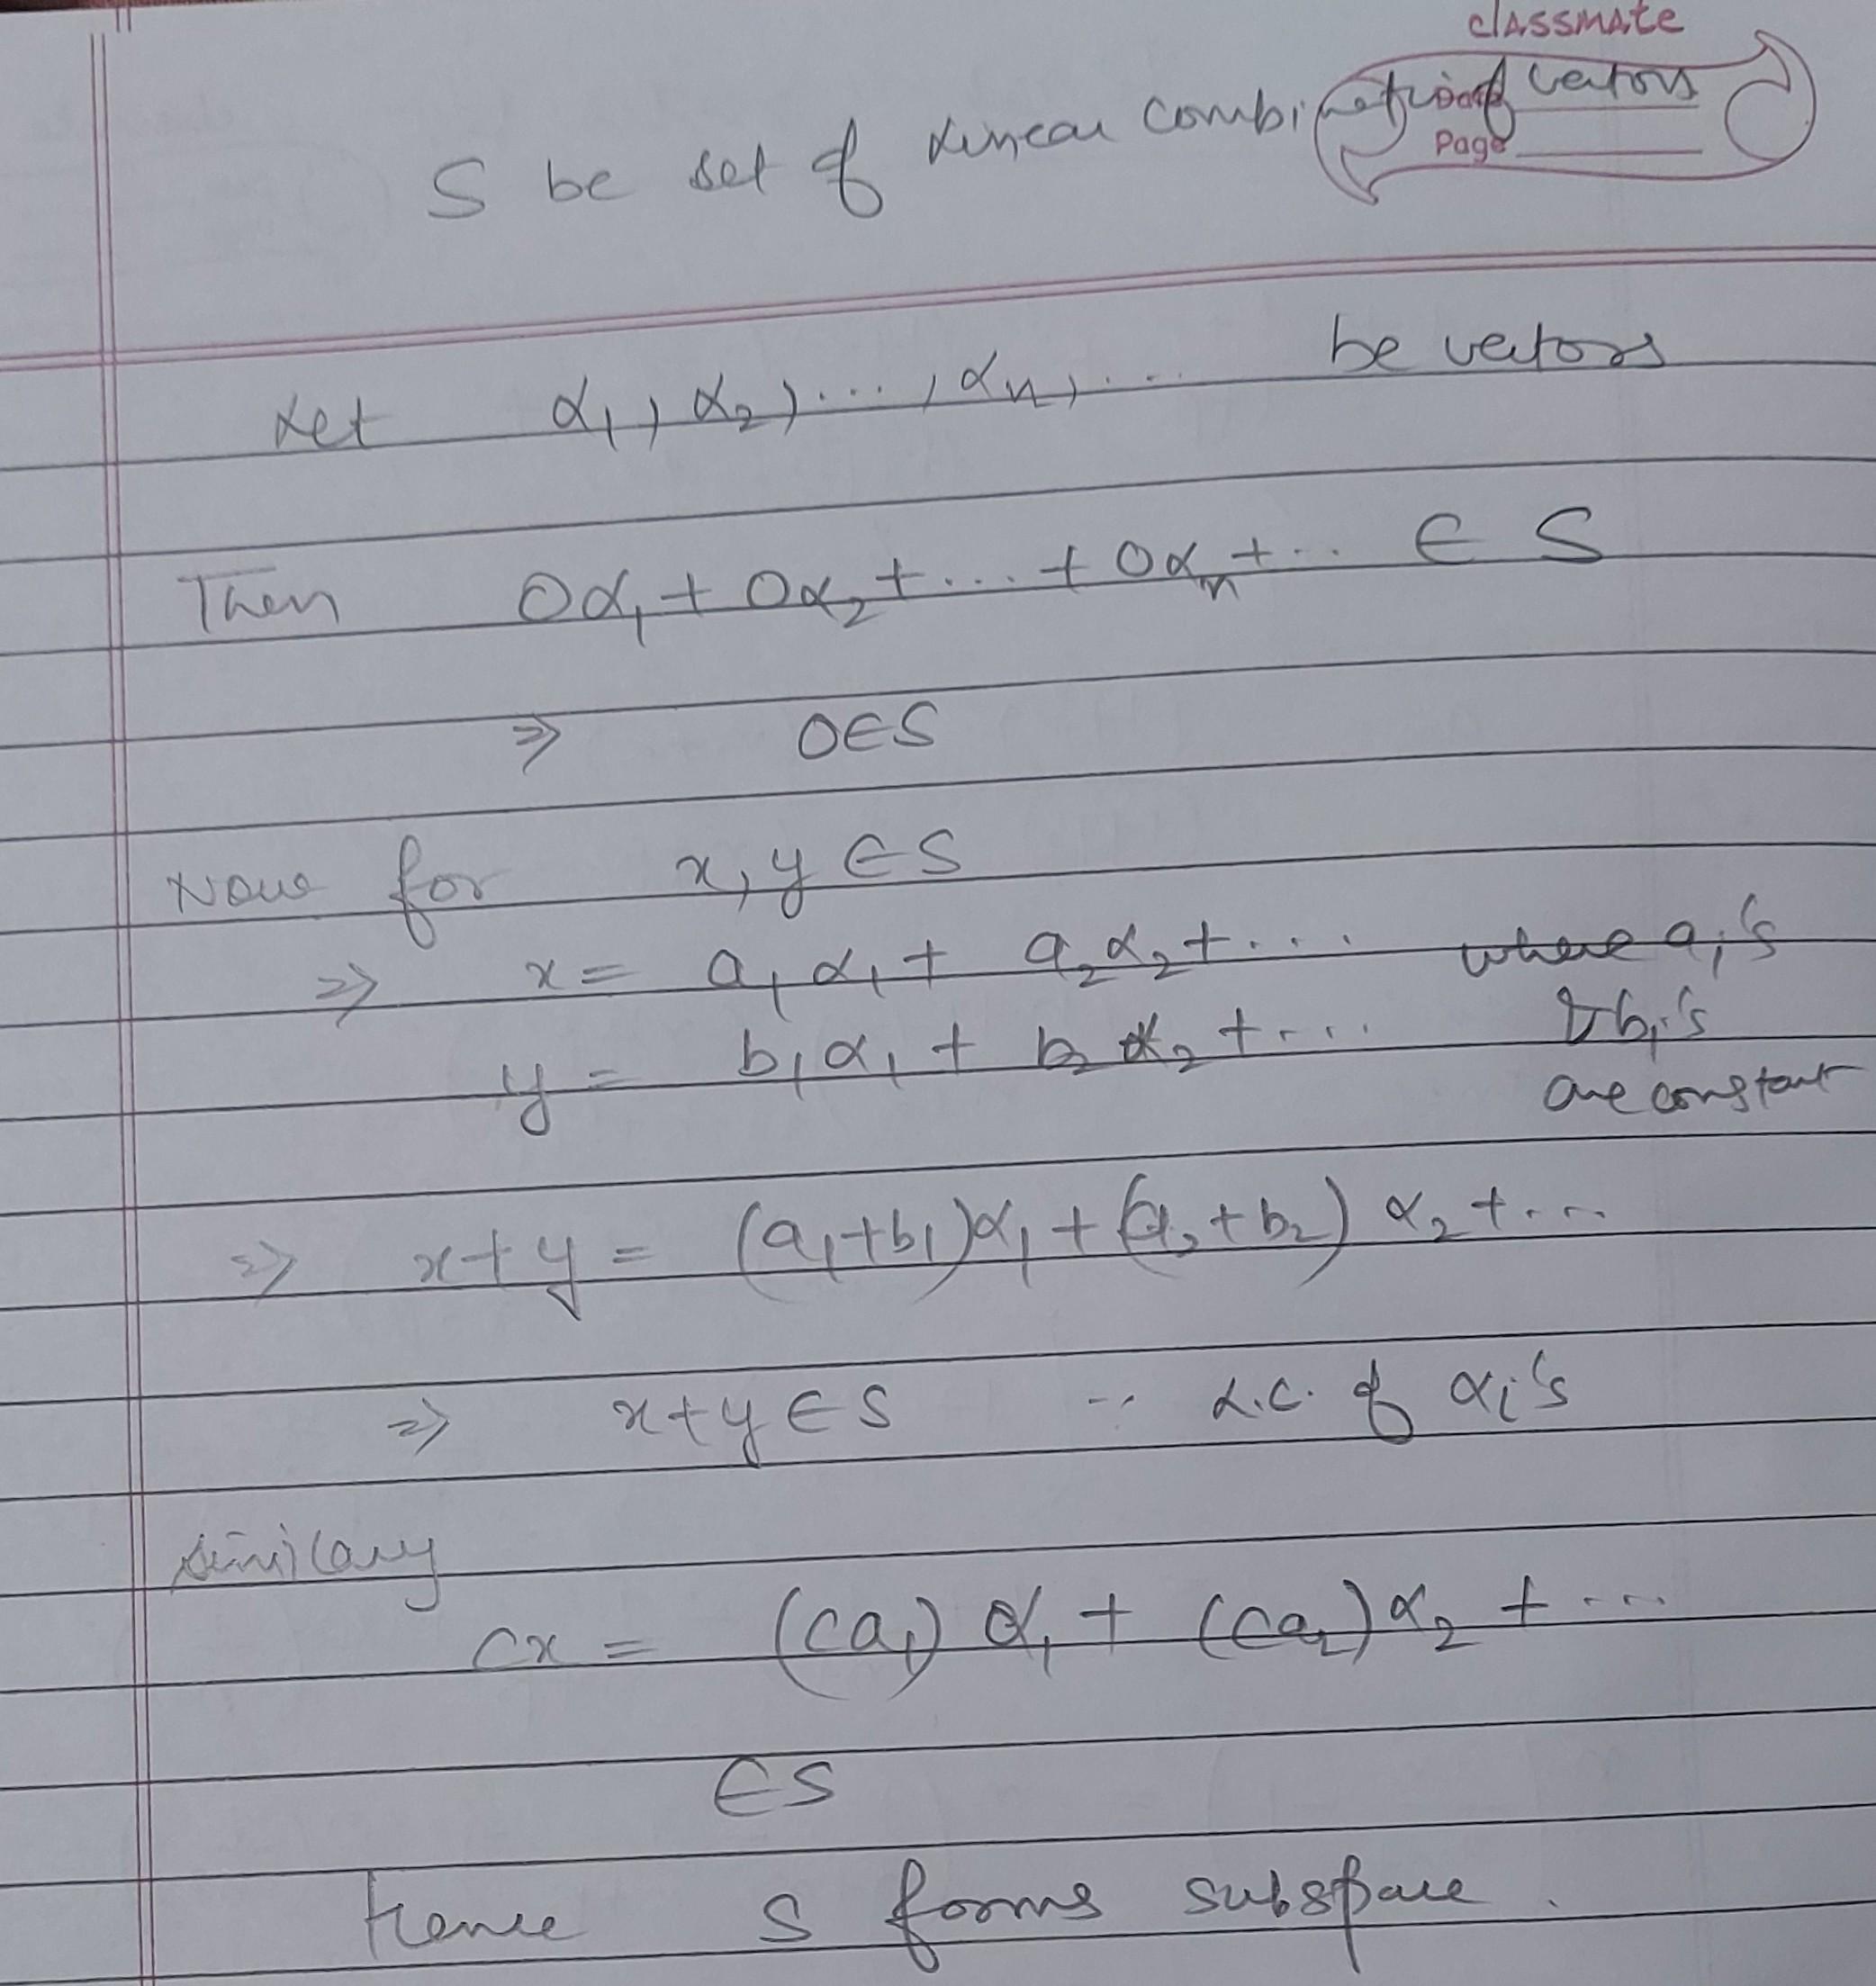 classmate
Date
Page
S be set of linear combination of vectors
Let α₁, α₂, ..., αₙ, ... be vectors
Then 0α₁ + 0α₂ + ... + 0αₙ + ... ∈ S
⇒ 0∈S
Now for x, y ∈ S
⇒ x = a₁α₁ + a₂α₂ + ... where aᵢ's
y = b₁α₁ + b₂α₂ + ... & bᵢ's
are constant
⇒ x+y = (a₁+b₁)α₁ + (a₂+b₂)α₂ + ...
⇒ x+y ∈ S ∵ L.C. of αᵢ's
Similary
cx = (ca₁)α₁ + (ca₂)α₂ + ...
∈ S
Hence S forms subspace.